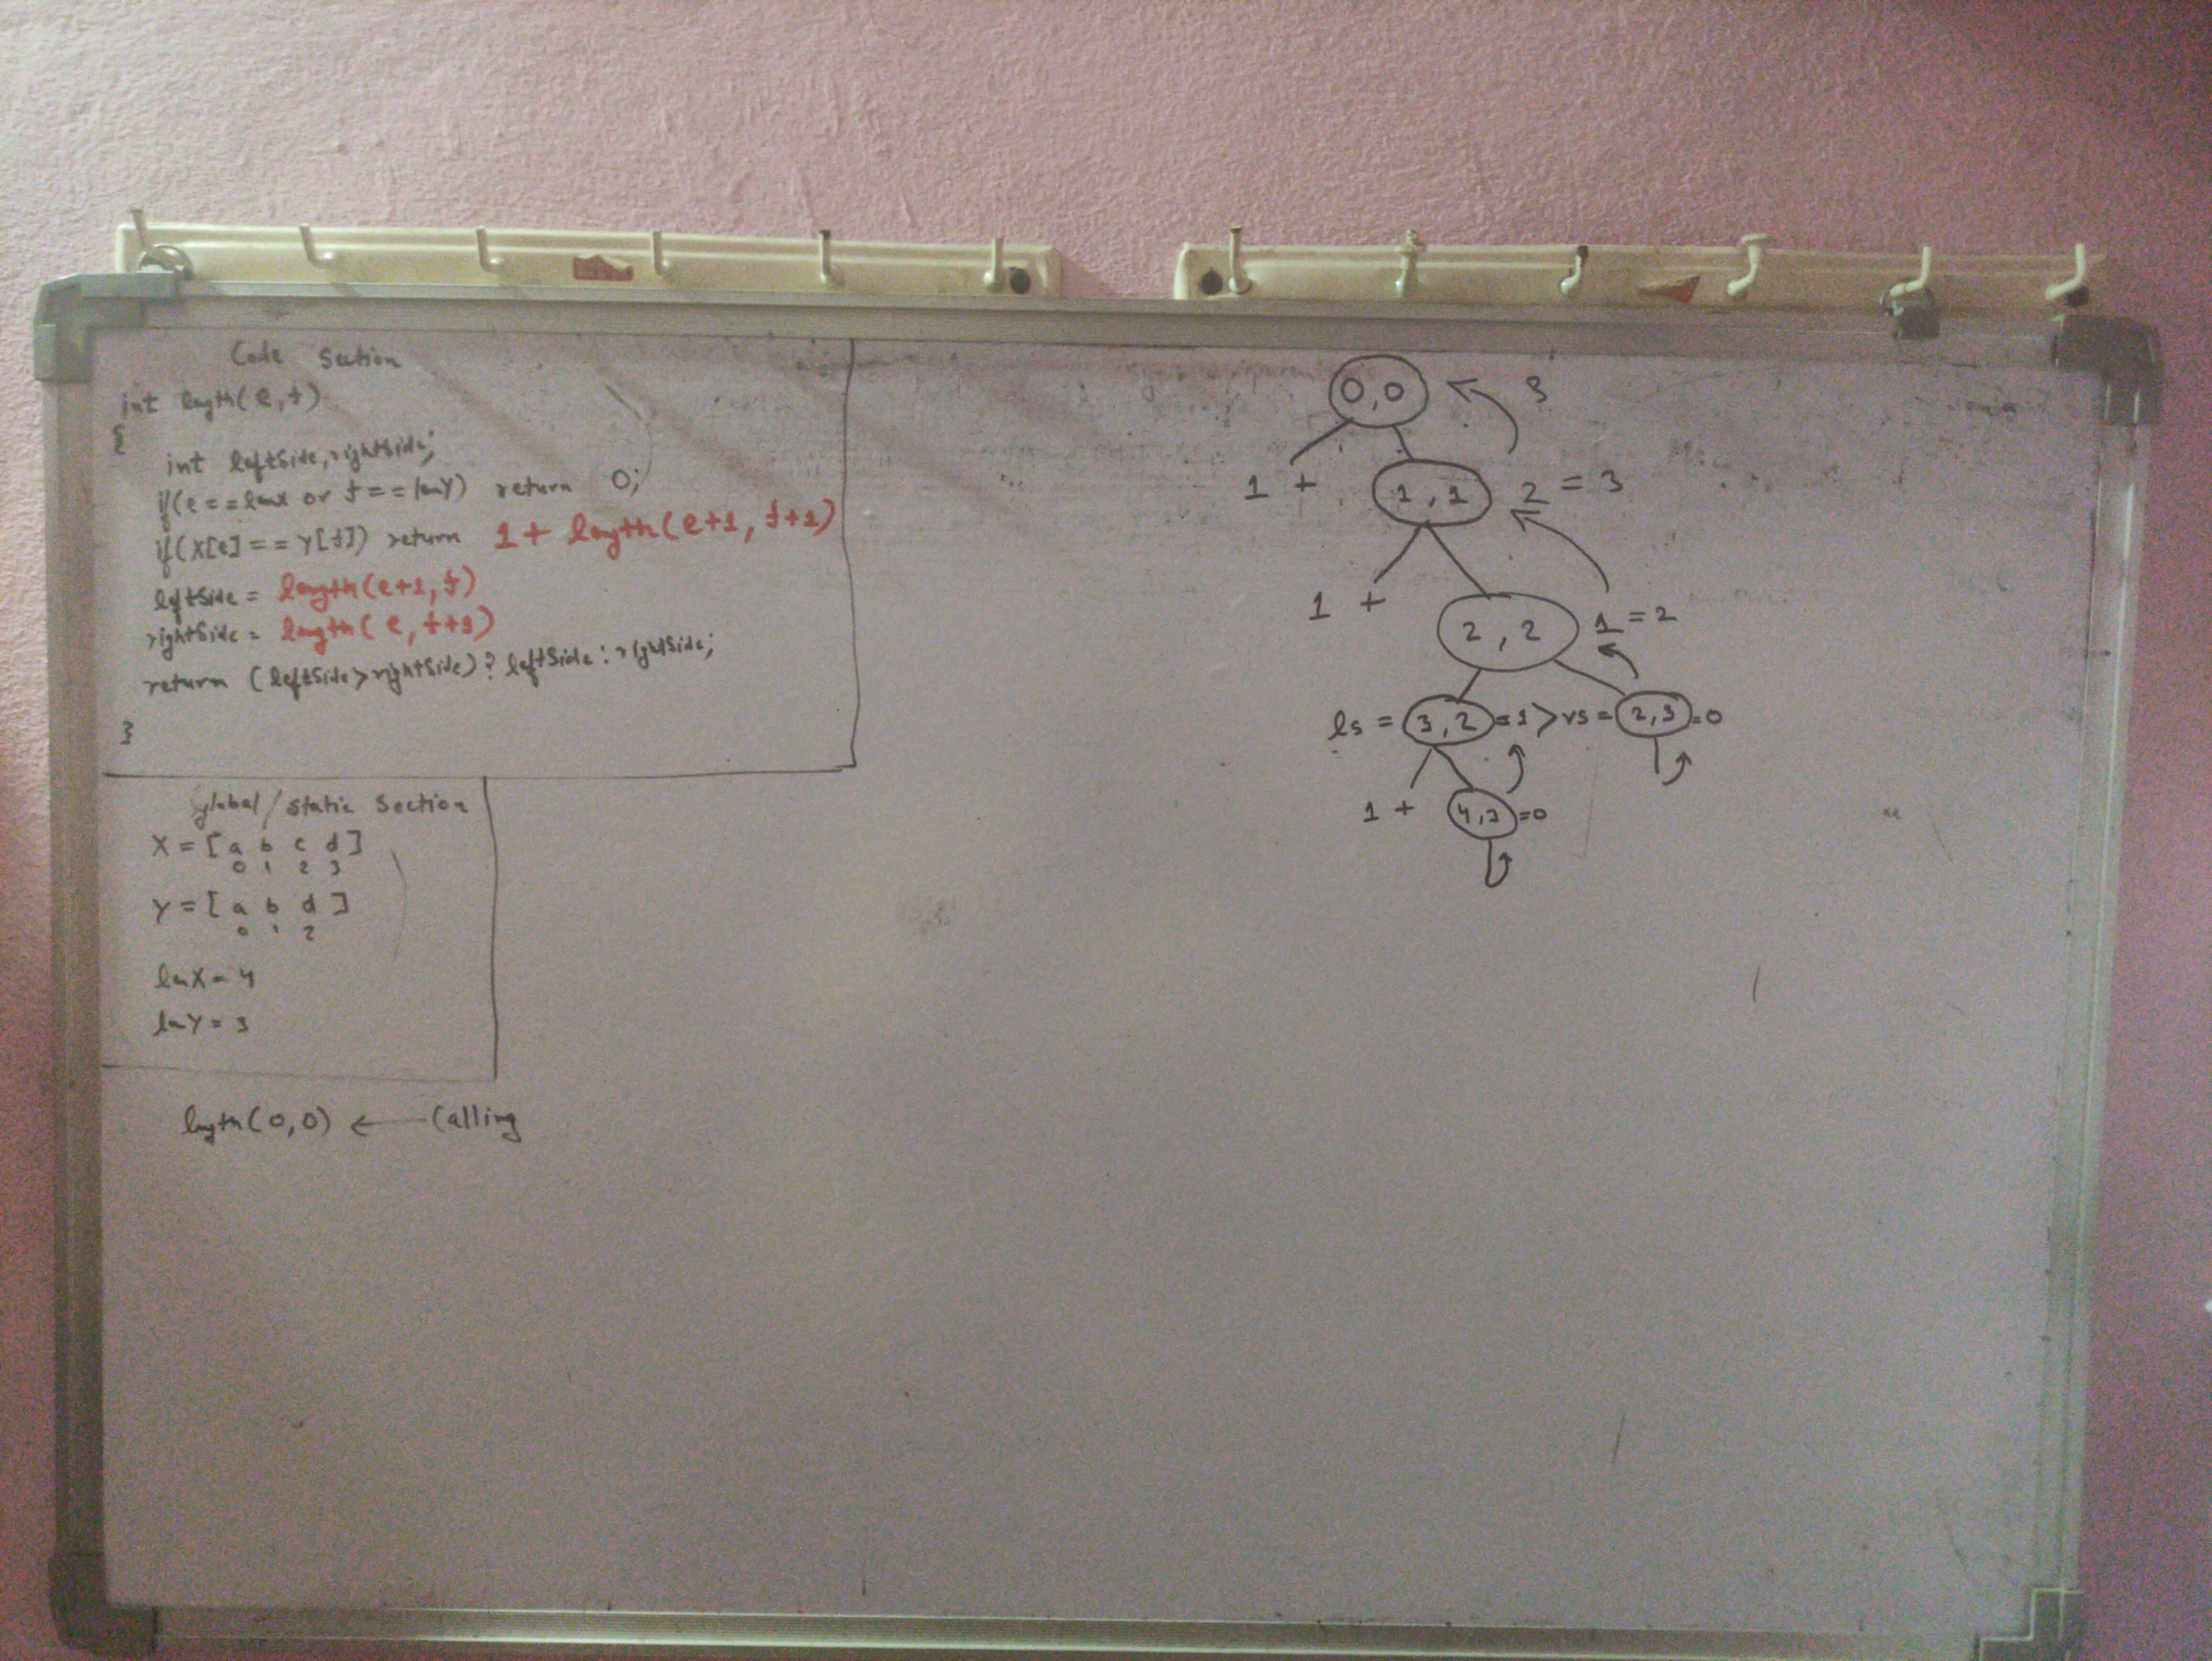 Code Section
int length(e,f)
{
int leftSide, rightSide;
if(e==lenX or f==lenY) return 0;
if(X[e]==Y[f]) return 1+ length(e+1, f+1)
leftSide = length(e+1,f)
rightSide = length(e, f+1)
return (leftSide>rightSide)? leftSide : rightSide;
}
global/static Section
X=[a b c d]
0 1 2 3
Y=[a b d]
0 1 2
lenX=4
lenY=3
length(0,0) ← Calling
0,0 3
1 + 1,1 2 = 3
1 + 2,2 1 = 2
ls = 3,2 =1 > rs = 2,3 =0
1 + 4,3 =0